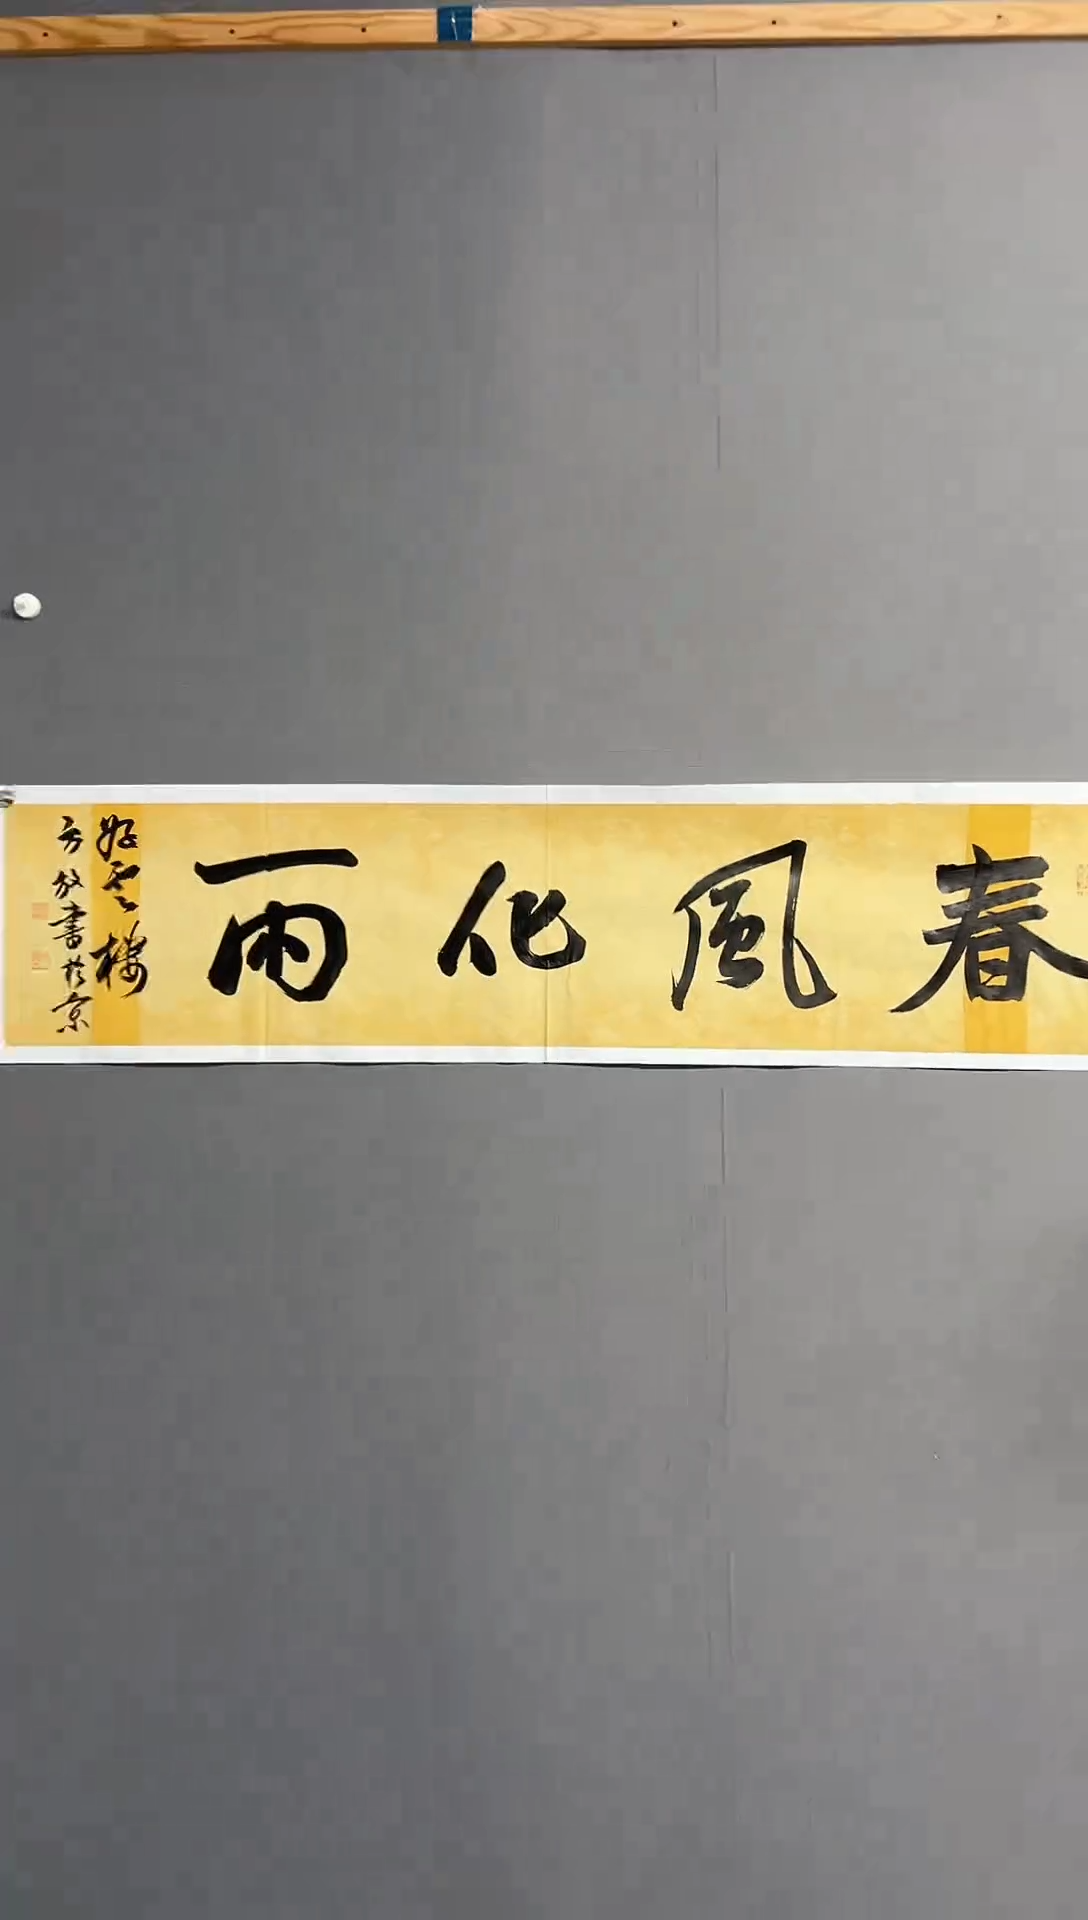 春風化雨
好雲樓
方放書於京